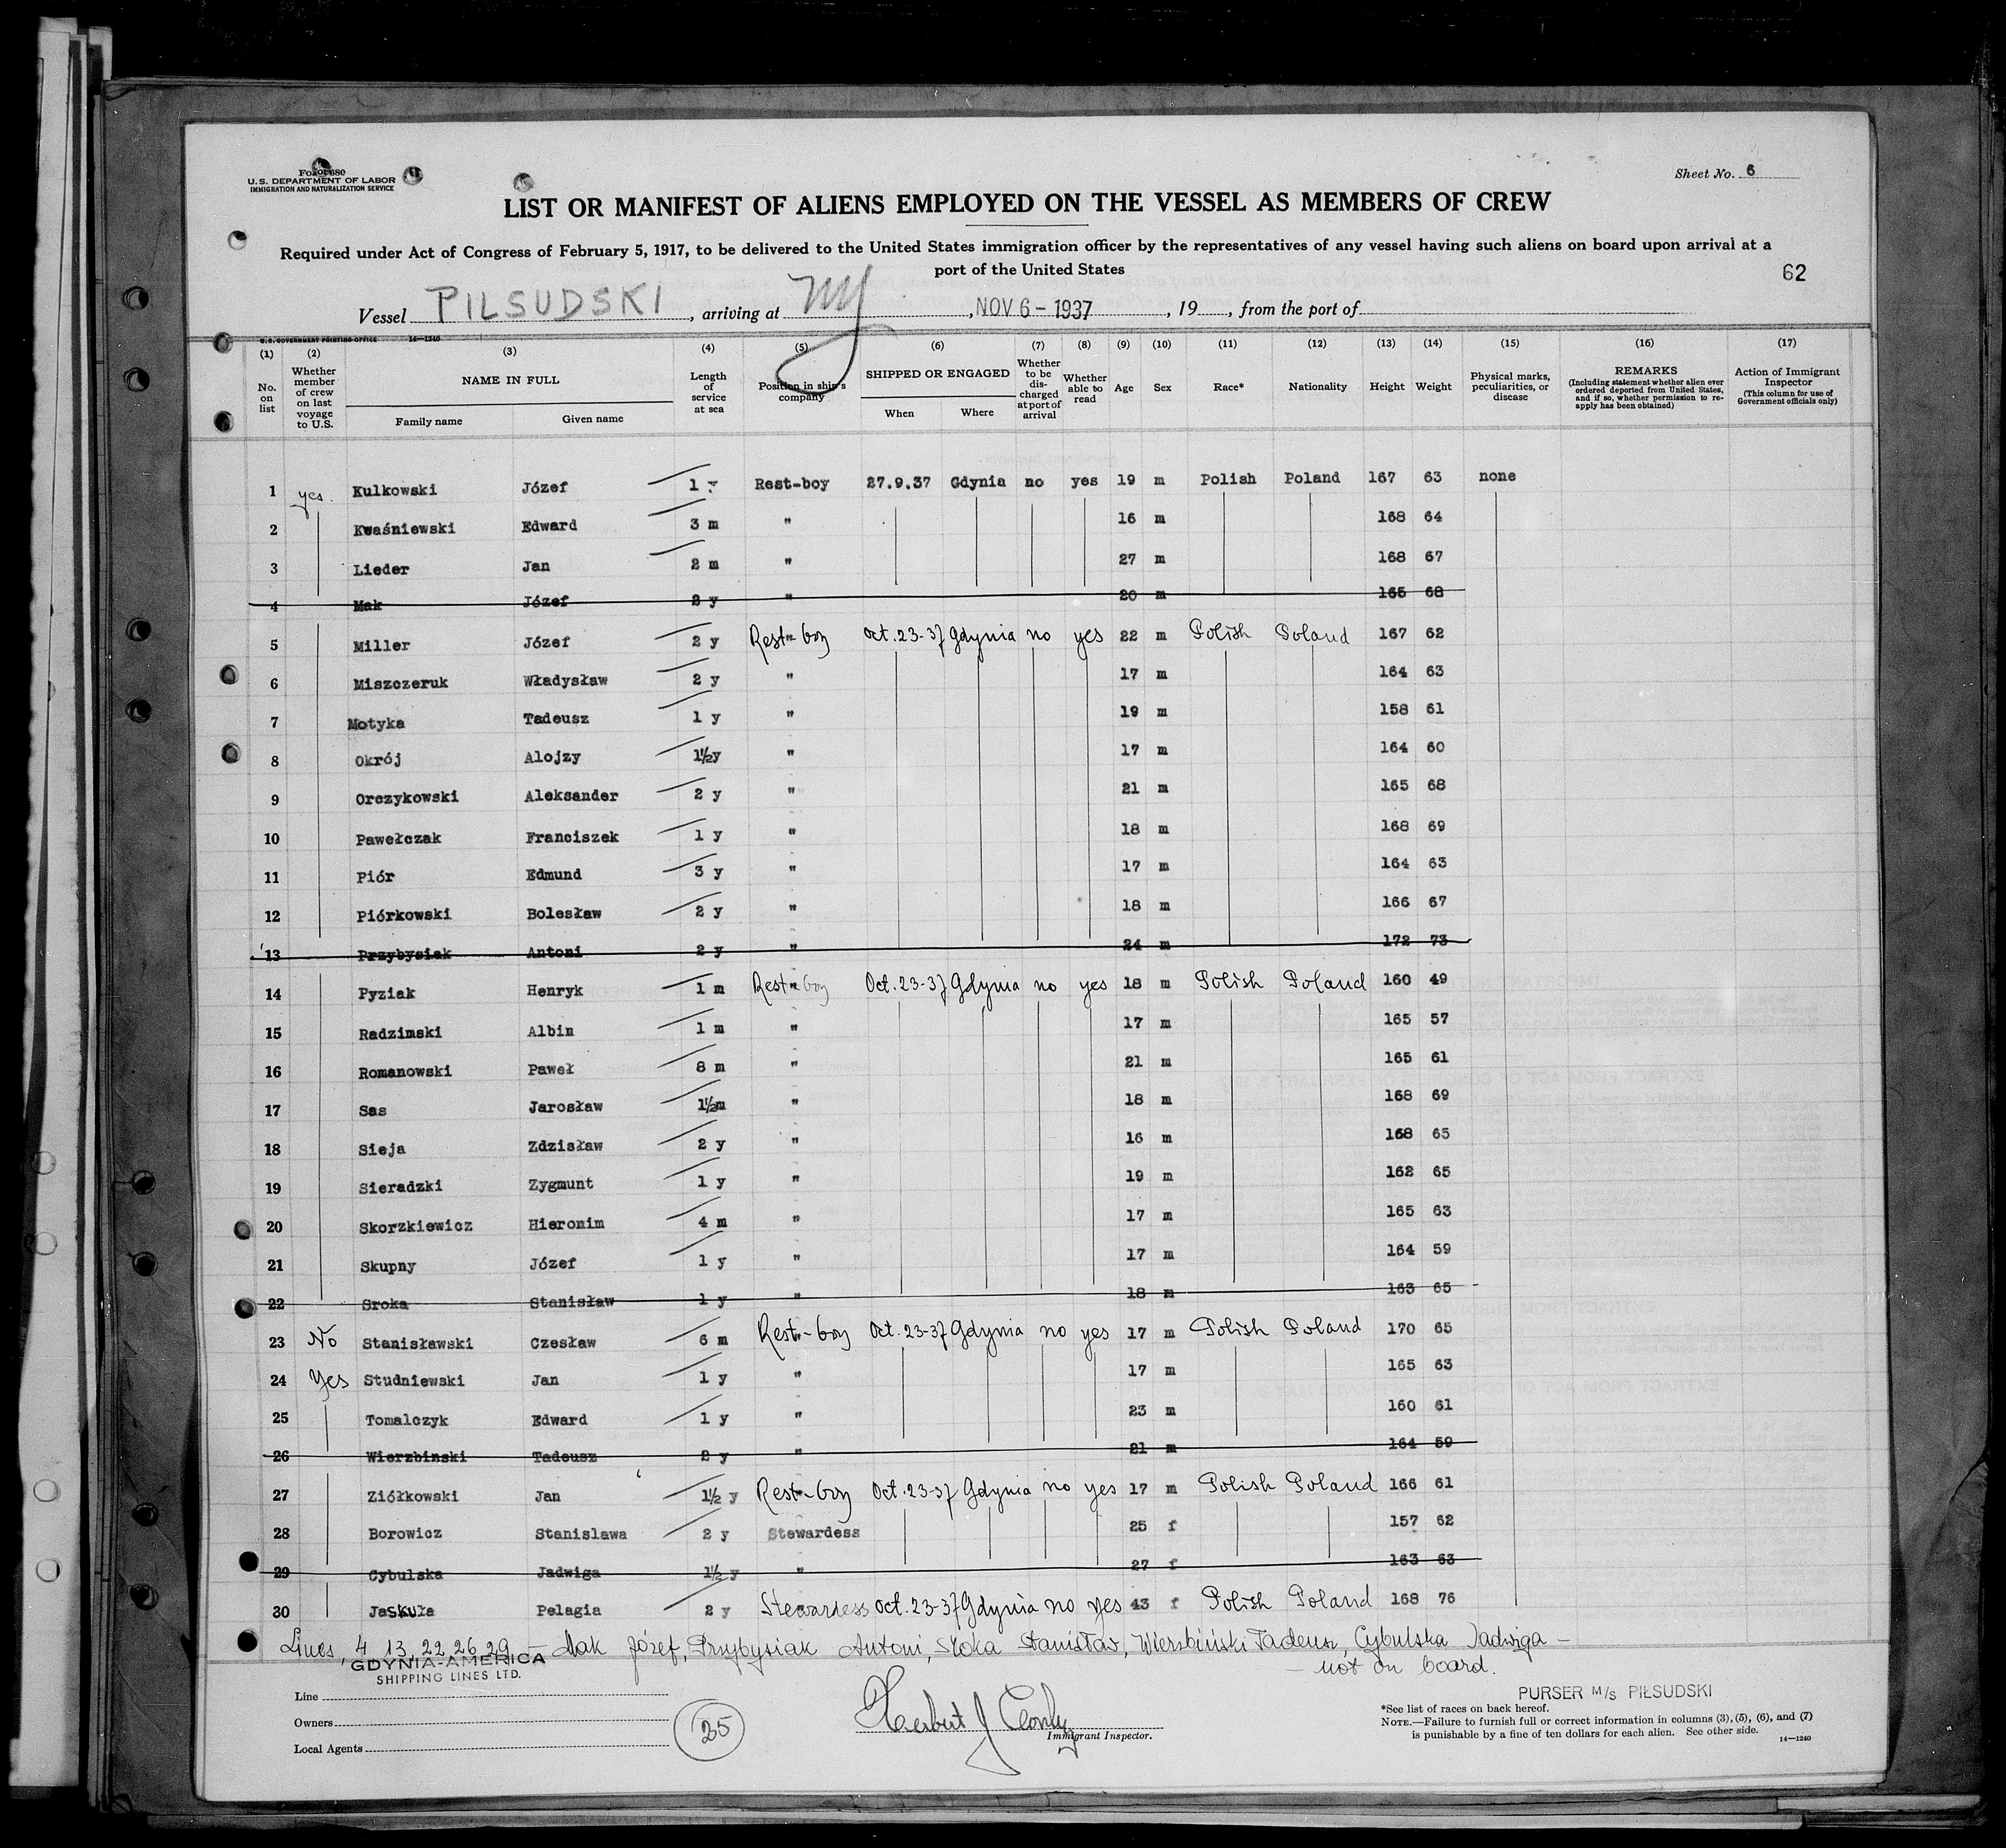 Form 680
U.S. DEPARTMENT OF LABOR
IMMIGRATION AND NATURALIZATION SERVICE
Sheet No. 6
LIST OR MANIFEST OF ALIENS EMPLOYED ON THE VESSEL AS MEMBERS OF CREW
Required under Act of Congress of February 5, 1917, to be delivered to the United States immigration officer by the representatives of any vessel having such aliens on board upon arrival at a
port of the United States
62
Vessel PILSUDSKI, arriving at NY, NOV 6 - 1937, 19, from the port of
U.S. GOVERNMENT PRINTING OFFICE 14—1240
(1) No. on list
(2) Whether member of crew on last voyage to U.S.
(3) NAME IN FULL Family name Given name
(4) Length of service at sea
(5) Position in ship's company
(6) SHIPPED OR ENGAGED When Where
(7) Whether to be discharged at port of arrival
(8) Whether able to read
(9) Age
(10) Sex
(11) Race*
(12) Nationality
(13) Height
(14) Weight
(15) Physical marks, peculiarities, or disease
(16) REMARKS (Including statement whether alien ever ordered deported from United States, and if so, whether permission to reapply has been obtained)
(17) Action of Immigrant Inspector (This column for use of Government officials only)
1 yes. Kulkowski Józef 1 y Rest-boy 27.9.37 Gdynia no yes 19 m Polish Poland 167 63 none
2 Kwaśniewski Edward 3 m " 16 m 168 64
3 Lieder Jan 2 m " 27 m 168 67
4 Mak Józef 2 y " 20 m 165 68
5 Miller Józef 2 y Rest-boy Oct. 23-37 Gdynia no yes 22 m Polish Poland 167 62
6 Miszczeruk Władysław 2 y " 17 m 164 63
7 Motyka Tadeusz 1 y " 19 m 158 61
8 Okrój Alojzy 1½y " 17 m 164 60
9 Orczykowski Aleksander 2 y " 21 m 165 68
10 Pawełczak Franciszek 1 y " 18 m 168 69
11 Piór Edmund 3 y " 17 m 164 63
12 Piórkowski Bolesław 2 y " 18 m 166 67
13 Przybysiak Antoni 2 y " 24 m 172 73
14 Pyziak Henryk 1 m Rest-boy Oct. 23-37 Gdynia no yes 18 m Polish Poland 160 49
15 Radzimski Albin 1 m " 17 m 165 57
16 Romanowski Paweł 8 m " 21 m 165 61
17 Sas Jarosław 1½m " 18 m 168 69
18 Sieja Zdzisław 2 y " 16 m 168 65
19 Sieradzki Zygmunt 1 y " 19 m 162 65
20 Skorzkiewicz Hieronim 4 m " 17 m 165 63
21 Skupny Józef 1 y " 17 m 164 59
22 Sroka Stanisław 1 y " 18 m 163 65
23 No Stanisławski Czesław 6 m Rest-boy Oct. 23-37 Gdynia no yes 17 m Polish Poland 170 65
24 Yes Studniewski Jan 1 y " 17 m 165 63
25 Tomalczyk Edward 1 y " 23 m 160 61
26 Wierzbinski Tadeusz 2 y " 21 m 164 59
27 Ziółkowski Jan 1½ y Rest-boy Oct. 23-37 Gdynia no yes 17 m Polish Poland 166 61
28 Borowicz Stanislawa 2 y Stewardess 25 f 157 62
29 Cybulska Jadwiga 1½ y " 27 f 163 63
30 Jaskuła Pelagia 2 y Stewardess Oct. 23-37 Gdynia no yes 43 f Polish Poland 168 76
Lines, 4, 13, 22, 26, 29 — Mak Józef, Przybysiak Antoni, Sroka Stanisław, Wierzbiński Tadeusz, Cybulska Jadwiga —
— not on board.
GDYNIA-AMERICA
SHIPPING LINES LTD.
Line
Owners
Local Agents
25
Herbert J
Immigrant Inspector.
PURSER M/s PIŁSUDSKI
*See list of races on back hereof.
NOTE.—Failure to furnish full or correct information in columns (3), (5), (6), and (7)
is punishable by a fine of ten dollars for each alien. See other side.
14—1240